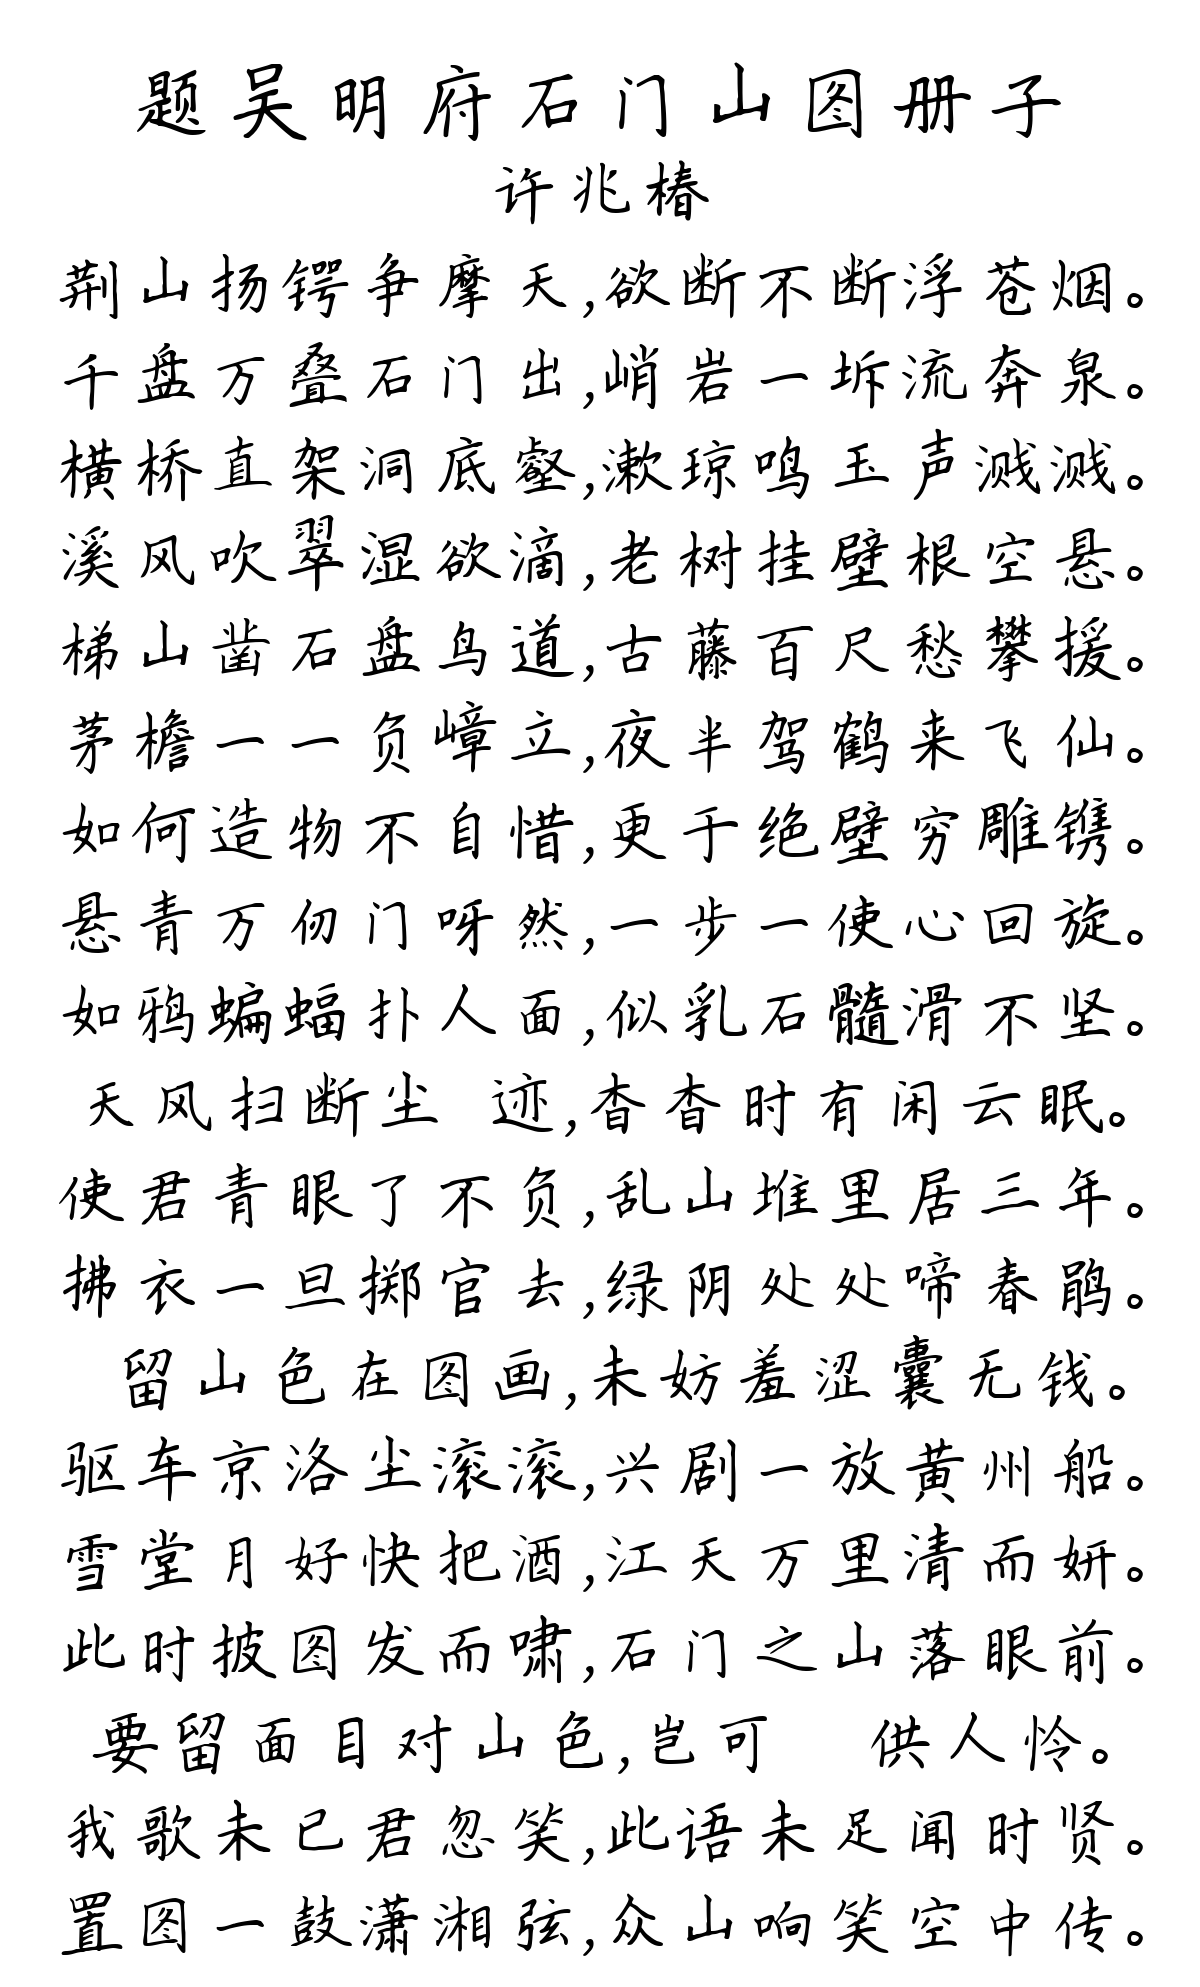 题吴明府石门山图册子
许兆椿
荆山扬锷争摩天,欲断不断浮苍烟。
千盘万叠石门出,峭岩一坼流奔泉。
横桥直架洞底壑,漱琼鸣玉声溅溅。
溪风吹翠湿欲滴,老树挂壁根空悬。
梯山凿石盘鸟道,古藤百尺愁攀援。
茅檐一一负嶂立,夜半驾鹤来飞仙。
如何造物不自惜,更于绝壁穷雕镌。
悬青万仞门呀然,一步一使心回旋。
如鸦蝙蝠扑人面,似乳石髓滑不坚。
天风扫断尘 迹,杳杳时有闲云眠。
使君青眼了不负,乱山堆里居三年。
拂衣一旦掷官去,绿阴处处啼春鹃。
留山色在图画,未妨羞涩囊无钱。
驱车京洛尘滚滚,兴剧一放黄州船。
雪堂月好快把酒,江天万里清而妍。
此时披图发而啸,石门之山落眼前。
要留面目对山色,岂可 供人怜。
我歌未已君忽笑,此语未足闻时贤。
置图一鼓潇湘弦,众山响笑空中传。